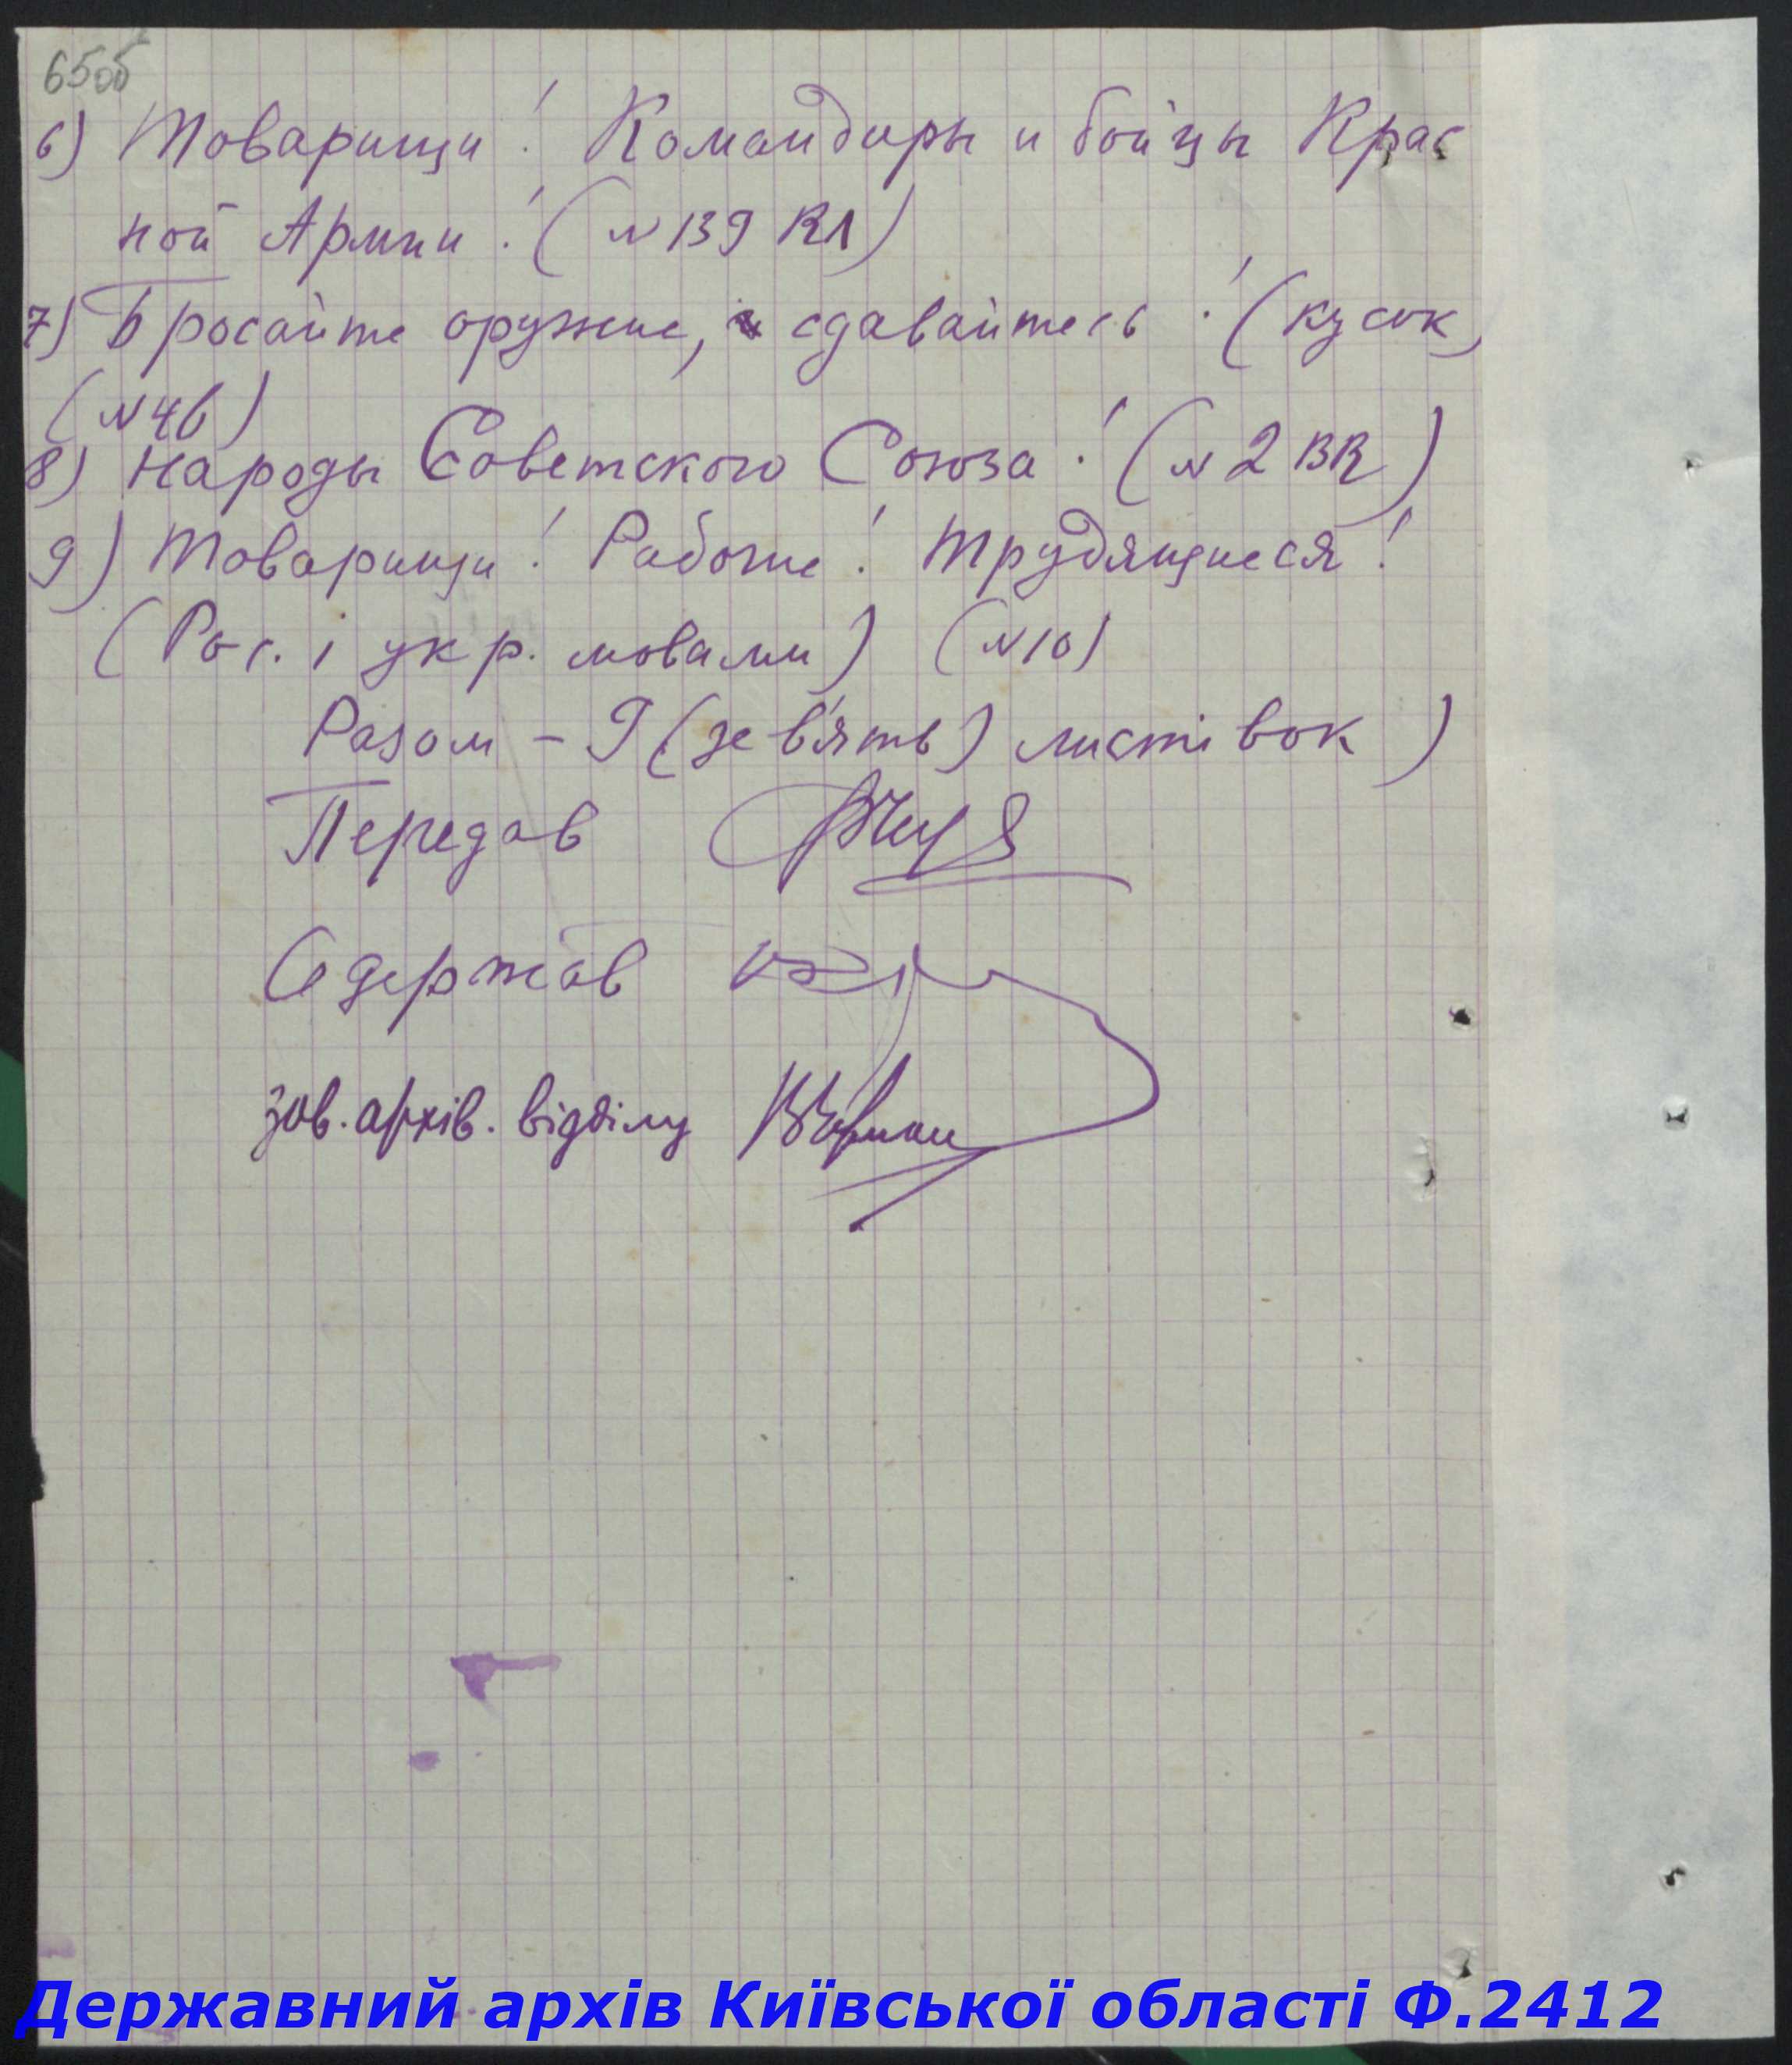 65об
6) Товарищи! Командиры и бойцы Крас
ной Армии! (N 139 RA)
7) Бросайте оружие, сдавайтесь! (кусок)
(N 46)
8) Народы Советского Союза! (N 2 BR)
9) Товарищи! Рабочие! Трудящиеся!
(Рос. і укр. мовами) (N 10)
Разом - 9 (дев'ять) листівок)
Передав
Одержав
зав. архів. відділу
Державний архів Київської області Ф.2412